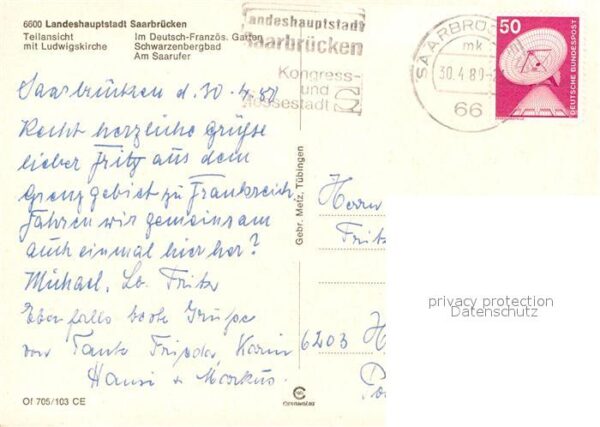 6600 Landeshauptstadt Saarbrücken
Teilansicht Im Deutsch-Französ. Garten
mit Ludwigskirche Schwarzenbergbad
Am Saarufer
Landeshauptstadt
Saarbrücken
Kongress-
und
Messestadt
SAARBRÜC
mk
30.4.80
66
50
DEUTSCHE BUNDESPOST
Saarbrücken d. 30.4.80
Recht herzliche Grüße
lieber Fritz aus dem
Grenzgebiet zu Frankreich.
Fahren wir gemeinsam
auch einmal hier her?
Michael. Lb. Fritz
Ebenfalls beste Grüße
von Tante Frieda, Karin
Hansi + Markus.
Gebr. Metz, Tübingen
Herrn
Fritz
6203 H
privacy protection
Datenschutz
Of 705/103 CE